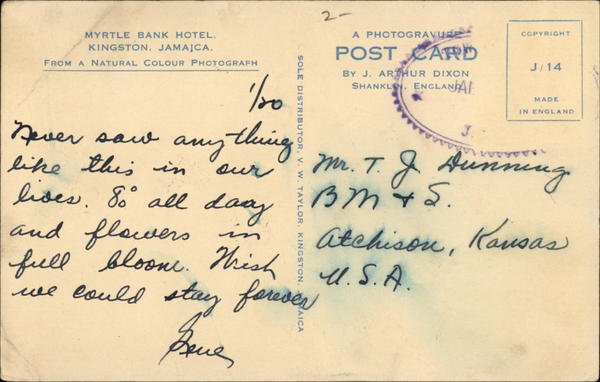 2-
MYRTLE BANK HOTEL.
KINGSTON, JAMAICA.
FROM A NATURAL COLOUR PHOTOGRAPH
1/20
Never saw anything
like this in our
lives. 80° all day
and flowers in
full bloom. Wish
we could stay forever
Gene
SOLE DISTRIBUTOR, V. W. TAYLOR, KINGSTON, JAMAICA
A PHOTOGRAVURE
POST CARD
BY J. ARTHUR DIXON
SHANKLIN, ENGLAND
COPYRIGHT
J/14
MADE
IN ENGLAND
JA
J.
Mr. T. J. Dunning
B M & S.
Atchison, Kansas
U.S.A.